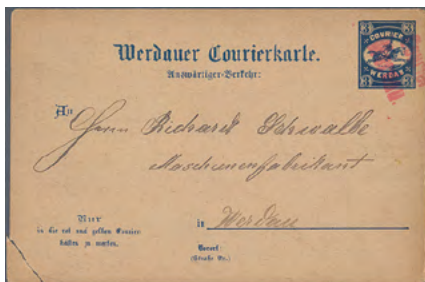 Werdauer Courierkarte.
Auswärtiger-Verkehr:
3 COURIER 3
WERDAU
3 3
An
Herrn Richard Schwalbe
Maschienenfabrikant
Nur
in die rot und gelben Courier-
kästen zu werfen.
in Werdau
Vorort:
(Straße Nr.)